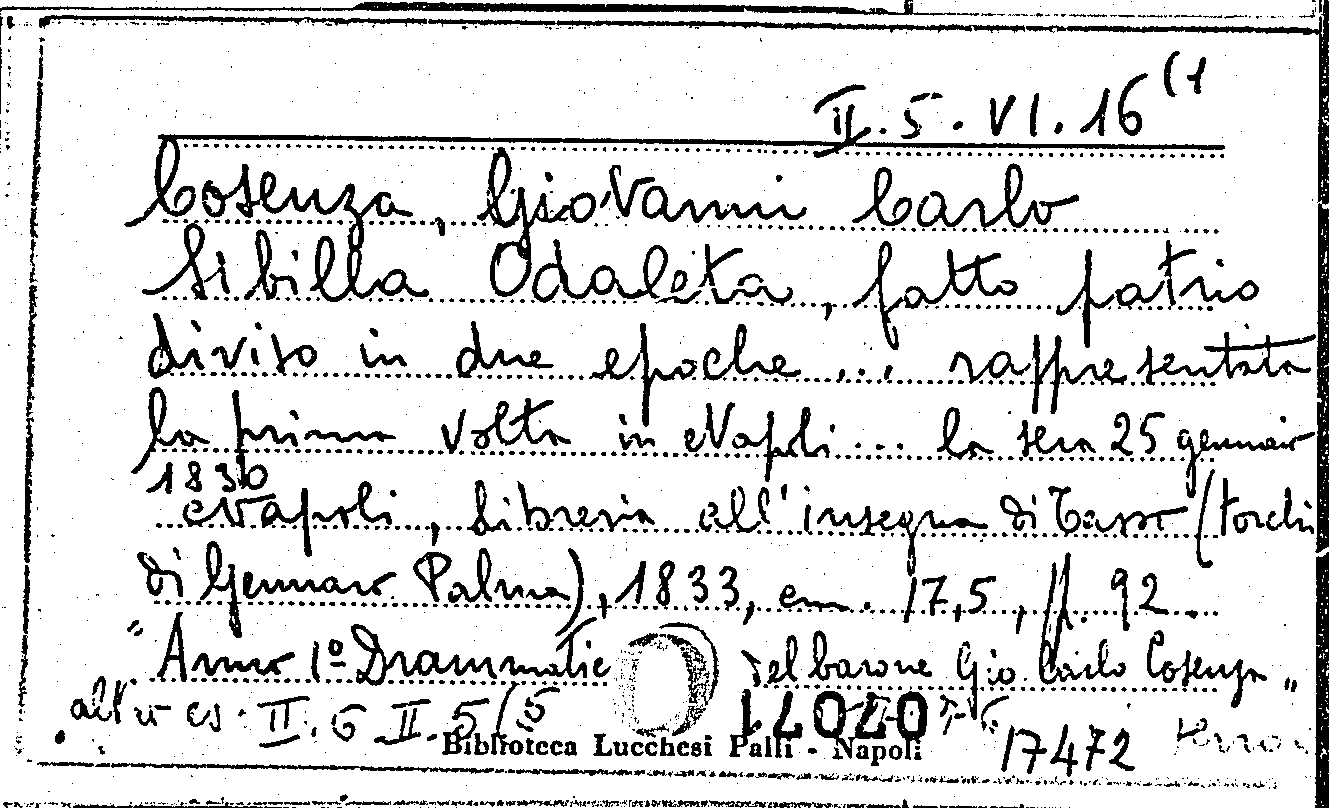 II. 5. VI. 16 (1
Cosenza, Giovanni Carlo
Sibilla Odaleta, fatto patrio
diviso in due epoche ... rappresentata
la prima volta in Napoli ... la sera 25 gennaio
1830
Napoli, Libreria all'insegna di Tasso (torchi
di Gennaro Palma), 1833, cm. 17,5, pp. 92.
"Anno 1º Drammatic del barone Gio Carlo Cosenza"
altro es. II. 6 II. 5 (5
17472
Biblioteca Lucchesi Palli - Napoli